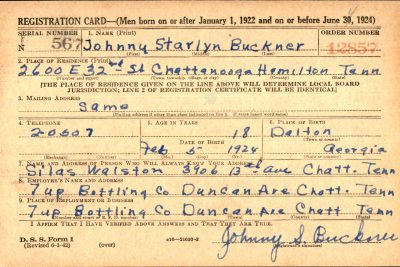 REGISTRATION CARD—(Men born on or after January 1, 1922 and on or before June 30, 1924)
SERIAL NUMBER 1. NAME (Print) ORDER NUMBER
N 567 Johnny Starlyn Buckner 12857
(First) (Middle) (Last)
2. PLACE OF RESIDENCE (Print)
2600 E 32nd St Chattanooga Hamilton Tenn
(Number and street) (Town, township, village, or city) (County) (State)
[THE PLACE OF RESIDENCE GIVEN ON THE LINE ABOVE WILL DETERMINE LOCAL BOARD
JURISDICTION; LINE 2 OF REGISTRATION CERTIFICATE WILL BE IDENTICAL]
3. MAILING ADDRESS
Same
[Mailing address if other than place indicated on line 2. If same insert word same]
4. TELEPHONE 5. AGE IN YEARS 6. PLACE OF BIRTH
18 Dalton
DATE OF BIRTH (Town or county)
Feb 5 1924 Georgia
(Exchange) (Number) (Mo.) (Day) (Yr.) (State or country)
7. NAME AND ADDRESS OF PERSON WHO WILL ALWAYS KNOW YOUR ADDRESS
Silas Walston 3906 13th ave Chatt. Tenn
8. EMPLOYER'S NAME AND ADDRESS
7up Bottling Co Duncan Are Chatt. Tenn
9. PLACE OF EMPLOYMENT OR BUSINESS
7up Bottling Co Duncan Are Chatt Tenn
I AFFIRM THAT I HAVE VERIFIED ABOVE ANSWERS AND THAT THEY ARE TRUE.
D. S. S. Form 1
(Revised 6-9-42) (over) Johnny S. Buckner